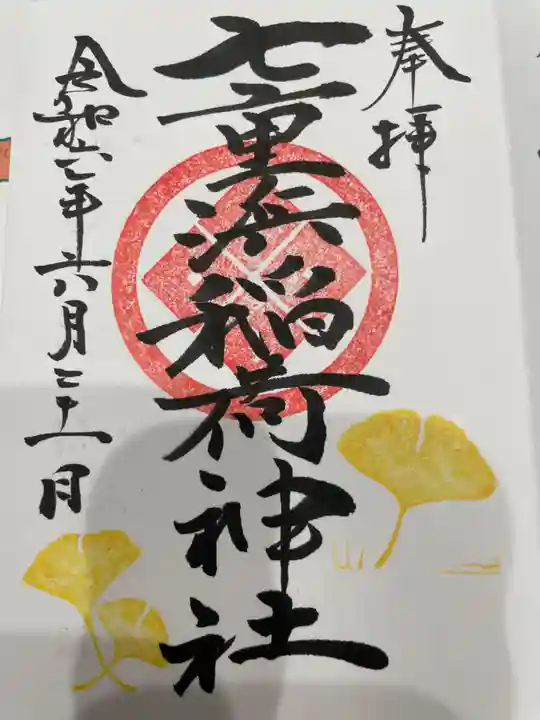 奉拝
七重浜稲荷神社
令和六年六月二十一日